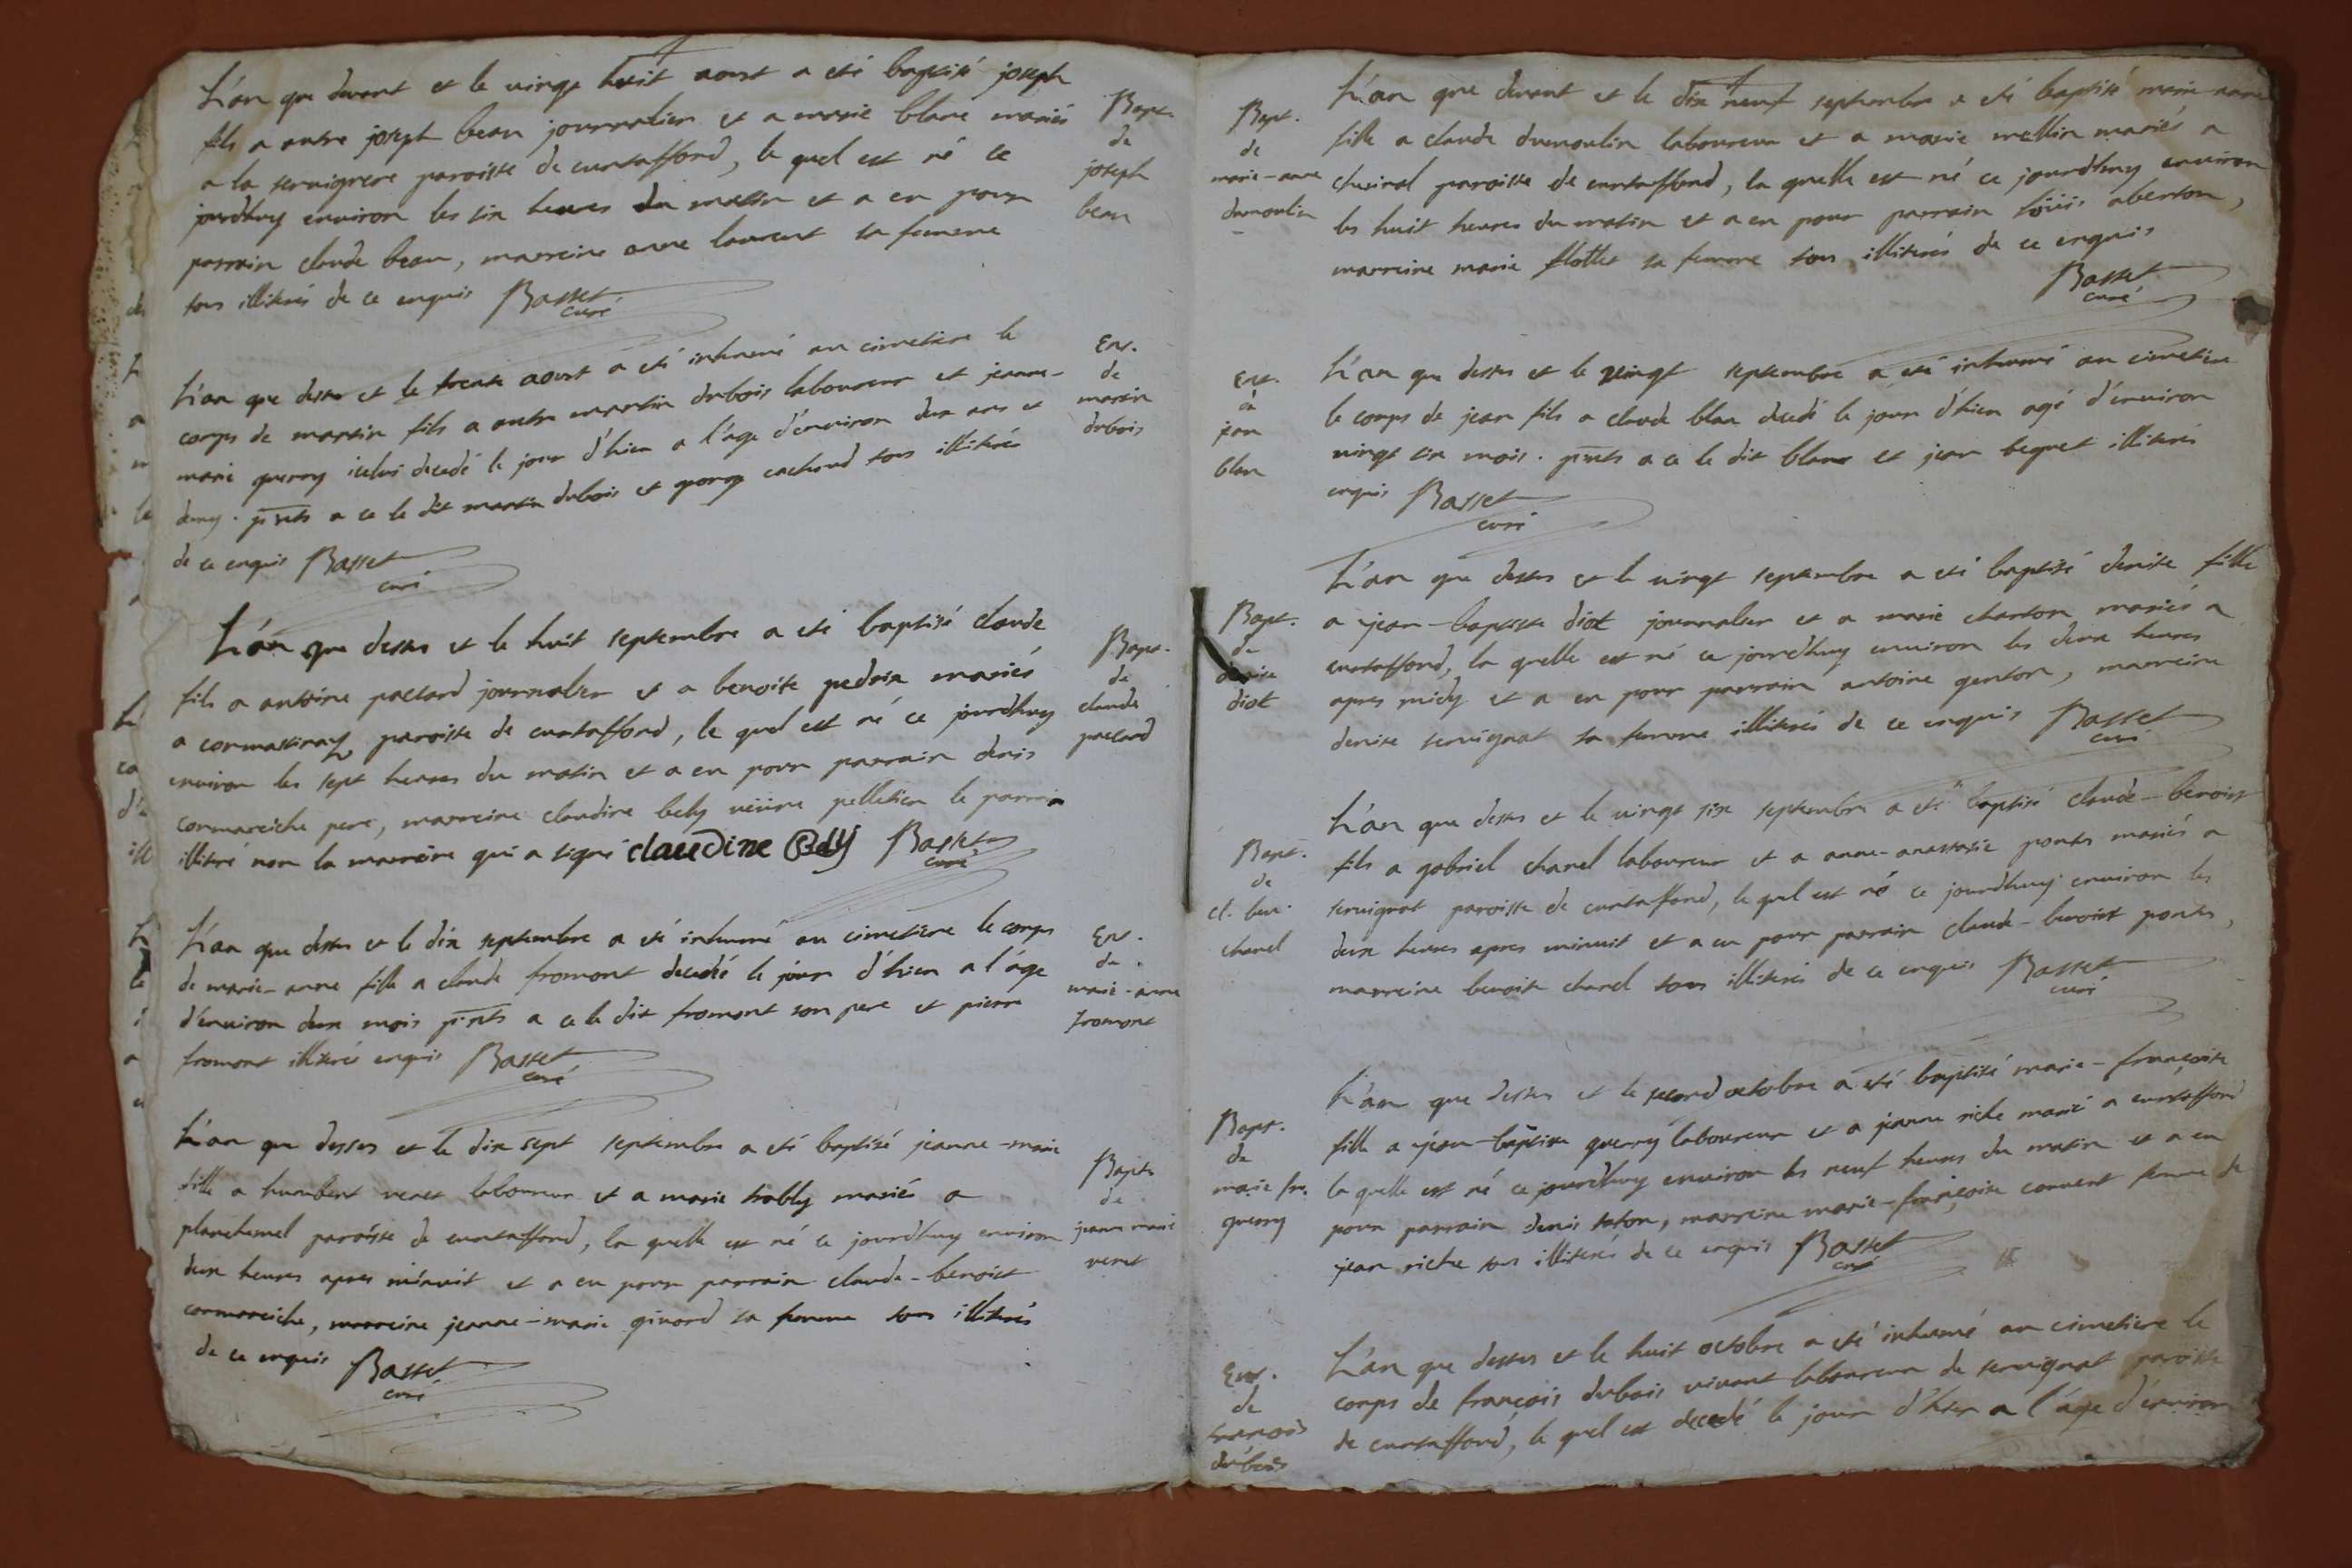 L'an que devant et le vingt huit aoust a eté baptisé joseph
fils a autre joseph beau journalier et a marie blanc mariés
a la servignere paroisse de curtaffond, le quel est né ce
jourdhuy environ les six heures du matin et a eu pour
parrain claude beau, marreine anne laurent sa femme
tous illiterés de ce enquis Basset
curé
Bapt.
de
joseph
beau
L'an que dessus et le trente aoust a eté inhumé au cimetiere le
corps de martin fils a autre martin dubois laboureur et jeanne-
marie guerry icelui decedé le jour d'hier a l'age d'environ deux ans et
demy. pñts a ce le dit martin dubois et george cachord tous illiterés
de ce enquis Basset
curé
Ent.
de
martin
dubois
L'an que dessus et le huit septembre a eté baptisé claude
fils a antoine paccard journalier et a benoite pedrix mariés
a cormassinaz paroisse de curtaffond, le quel est né ce jourdhuy
environ les sept heures du matin et a eu pour parrain denis
cormareiche pere, marreine claudine bely veüve pelletier le parrain
illitéré non la marreine qui a signé claudine Belÿ Basset
curé
Bapt.
de
claude
paccard
L'an que dessus et le dix septembre a eté inhumé au cimetiere le corps
de marie-anne fille a claude fromont decedé le jour d'hier a l'age
d'environ deux mois pñts a ce le dit fromont son pere et pierre
fromont illiterés enquis Basset
curé
Ent.
de
marie-anne
fromont
L'an que dessus et le dix sept septembre a eté baptisé jeanne-marie
fille a humbert veret laboureur et a marie trobly mariés a
planchemel paroisse de curtaffond, la quelle est né ce jourdhuy environ
deux heures apres minuit et a eu pour parrain claude-benoist
cormareiche, marreine jeanne-marie givord sa femme tous illiterés
de ce enquis Basset
curé
Bapt.
de
jeanne marie
veret
L'an que devant et le dix neuf septembre a eté baptisé marie-anne
fille a claude dumoulin laboureur et a marie mellin mariés a
cheviral paroisse de curtaffond, la quelle est né ce jourdhuy environ
les huit heures du matin et a eu pour parrain loüis aberton,
marreine marie flottet sa femme tous illiterés de ce enquis
Basset
curé
Bapt.
de
marie-anne
dumoulin
L'an que dessus et le vingt septembre a eté inhumé au cimetiere
le corps de jean fils a claude blan decedé le jour d'hier agé d'environ
vingt six mois. pñts a ce le dit blanc et jean beguet illiterés
enquis Basset
curé
Ent.
de
jean
blan
L'an que dessus et le vingt septembre a eté baptisé denise fille
a jean-baptiste diot journalier et a marie charton mariés a
curtaffond, la quelle est né ce jourdhuy environ les deux heures
apres midy et a eu pour parrain antoine genton, marreine
denise servignat sa femme illiterés de ce enquis Basset
curé
Bapt.
de
denise
diot
L'an que dessus et le vingt six septembre a eté baptisé claude-benoist
fils a gabriel chanel laboureur et a anne-anastasie ponts mariés a
servignat paroisse de curtaffond, le quel est né ce jourdhuy environ les
deux heures apres minuit et a eu pour parrain claude-benoist ponts,
marreine benoite chanel tous illiterés de ce enquis Basset
curé
Bapt.
de
cl. ben.
chanel
L'an que dessus et le second octobre a eté baptisé marie-françoise
fille a jean-baptiste guerry laboureur et a jeanne riche marié a curtaffond
la quelle est né ce jourdhuy environ les neuf heures du matin et a eu
pour parrain denis taton, marreine marie-françoise convert femme de
jean riche tous illiterés de ce enquis Basset
curé
Bapt.
de
marie fr.
guerry
L'an que dessus et le huit octobre a eté inhumé au cimetiere le
corps de françois dubois vivant laboureur de servignat paroisse
de curtaffond, le quel est decedé le jour d'hier a l'age d'environ
Ent.
de
francois
dubois